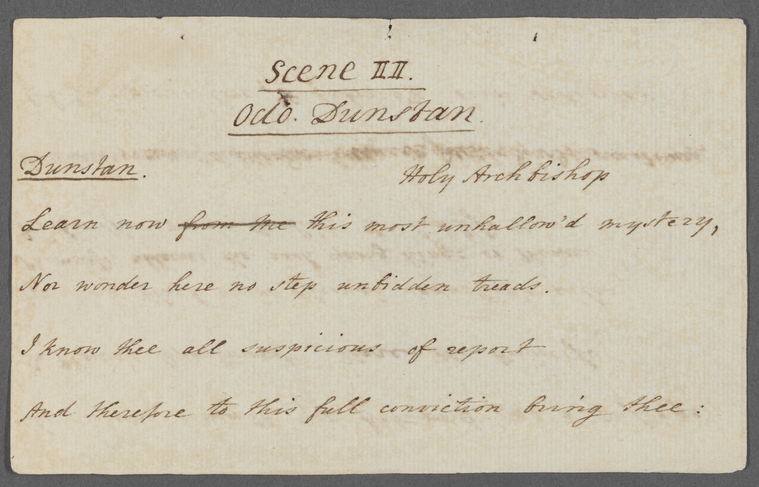 Scene III.
Odo. Dunstan.
Dunstan. Holy Archbishop
Learn now from me this most unhallow'd mystery,
Nor wonder here no step unbidden treads.
I know thee all suspicious of report
And therefore to this full conviction bring thee: